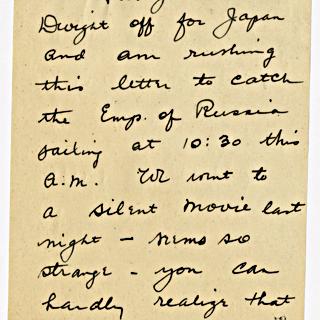 Dwight off for Japan
and am rushing
this letter to catch
the Emp. of Russia
sailing at 10:30 this
A.M. We went to
a silent movie last
night – seems so
strange – you can
hardly realize that